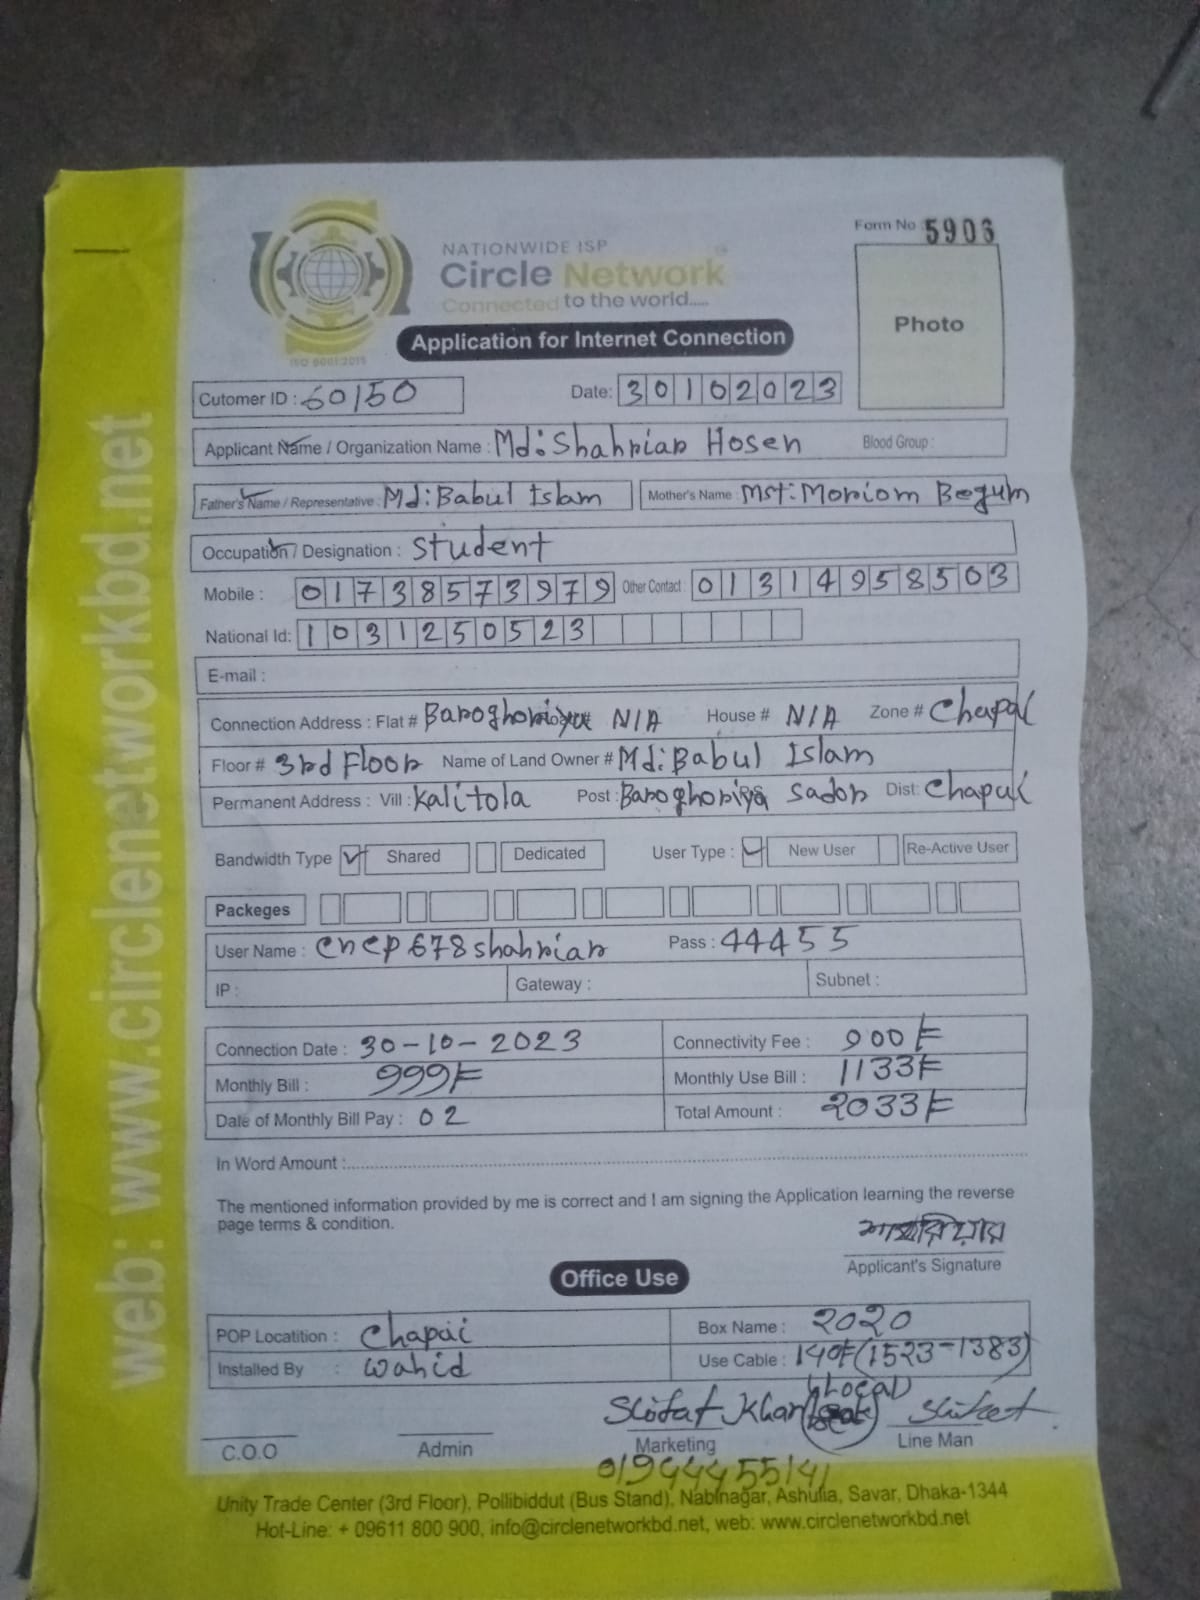 Form No 5906
NATIONWIDE ISP
Circle Network
Connected to the world.....
ISO 9001:2015
Photo
Application for Internet Connection
Cutomer ID : 60150 Date: 30102023
Applicant Name / Organization Name : Md: Shahriar Hosen Blood Group :
Father's Name / Representative : Md: Babul Islam Mother's Name : Mst: Moriom Begum
Occupation / Designation : Student
Mobile : 01738573979 Other Contact : 01314958503
National Id: 1031250523
E-mail :
Connection Address : Flat # Baroghoriya N/A House # N/A Zone # Chapai
Floor # 3rd Floor Name of Land Owner # Md: Babul Islam
Permanent Address : Vill : Kalitola Post : Baroghoriya P.S: Sador Dist: Chapai
Bandwidth Type Shared Dedicated User Type : New User Re-Active User
Packeges
User Name : cncp678shahriar Pass : 44455
IP : Gateway : Subnet :
Connection Date : 30-10-2023 Connectivity Fee : 900/=
Monthly Bill : 999/= Monthly Use Bill : 1133/=
Date of Monthly Bill Pay : 02 Total Amount : 2033/=
In Word Amount :
The mentioned information provided by me is correct and I am signing the Application learning the reverse
page terms & condition.
শাহরিয়ার
Applicant's Signature
Office Use
POP Locatition : Chapai Box Name : 2020
Installed By : Wahid Use Cable : 140F (1523-1383)
Sifat Khan LOCAL
C.O.O Admin Marketing Line Man
01944455141
Unity Trade Center (3rd Floor), Pollibiddut (Bus Stand), Nabinagar, Ashulia, Savar, Dhaka-1344
Hot-Line: + 09611 800 900, info@circlenetworkbd.net, web: www.circlenetworkbd.net
web: www.circlenetworkbd.net